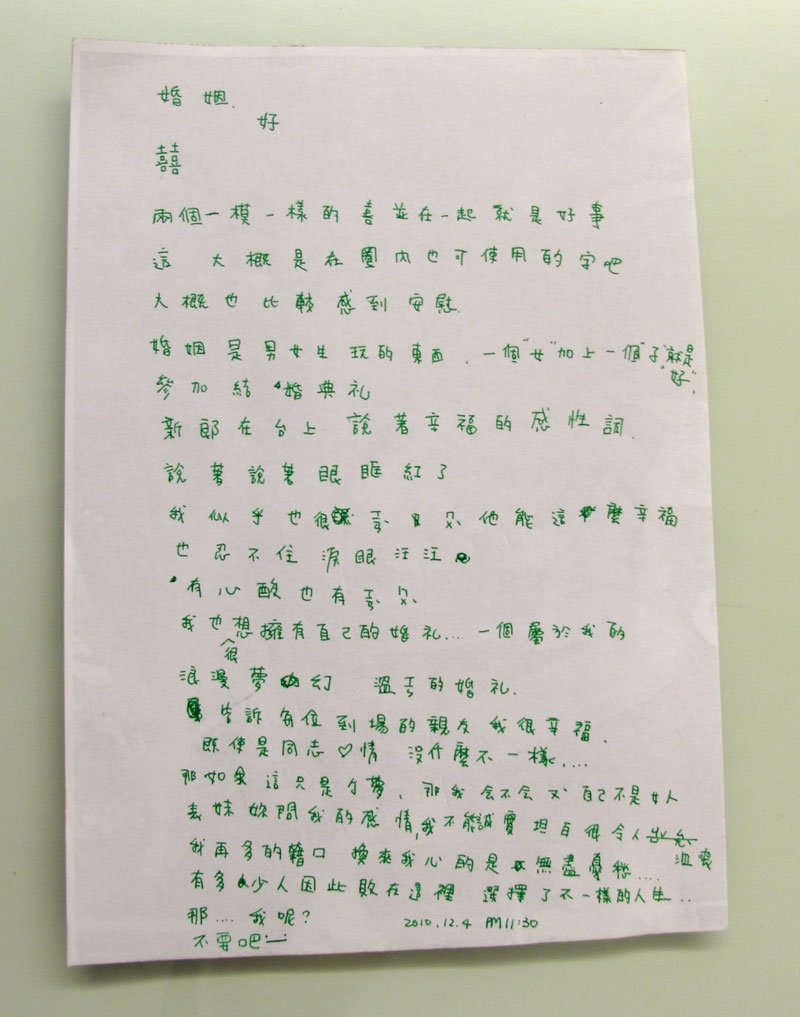 婚姻.
好
囍
兩個一模一樣的喜並在一起就是好事
這大概是在圈內也可使用的字吧
大概也比較感到安慰.
婚姻是男女生玩的東西.一個"女"加上一個"子"就是"好".
參加結婚典礼
新郎在台上說著幸福的感性詞.
說著說著眼眶紅了
我似乎也很ㄒㄧㄢˋ ㄇㄨˋ他能這麼幸福
也忍不住淚眼汪汪
有心酸也有
我也很想擁有自己的婚礼....一個屬於我的
浪漫夢幻 溫ㄒㄧㄣ的婚礼.
告訴每位到場的親友我很幸福.
既使是同志♡情 沒什麼不一樣.....
那如果這只是個夢,那我会不会 自己不是女人
表妹妳問我的感情,我不能誠實坦白很令人沮喪
我再多的籍口 換來我心的是無盡憂愁....
有多少人因此敗在這裡 選擇了不一樣的人生..
那....我呢?
2010.12.4 PM11:30
不要吧